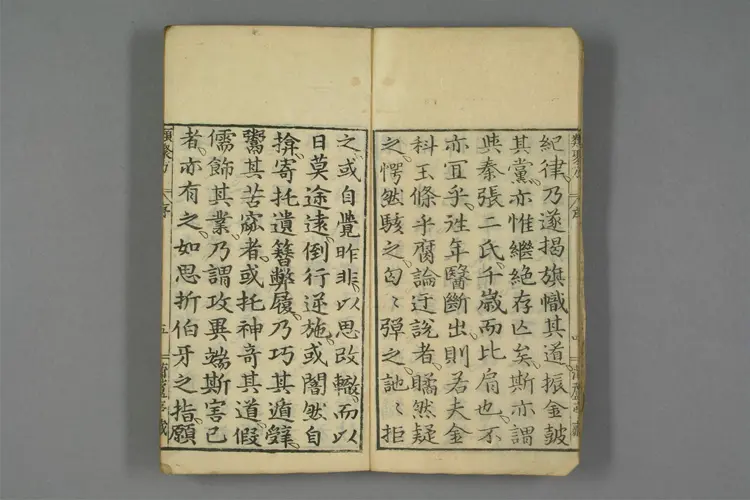 紀律乃遂揭旗幟其道振金皷
其黨亦惟繼絶存亾矣斯亦謂
與秦張二氏千歳而比肩也不
亦冝乎徃年醫斷出則若夫金
科玉條乎腐論迂説者瞲然疑
之愕然駭之匈〻彈之訑〻拒
之或自覺昨非以思改轍而以
日莫途遠倒行逆施或闇然自
揜寄托遺簪弊履乃巧其遁辟
鬻其苦窳者或托神奇其道假
儒飾其業乃謂攻異端斯害已
者亦有之如思折伯牙之指願
類聚方 序 五